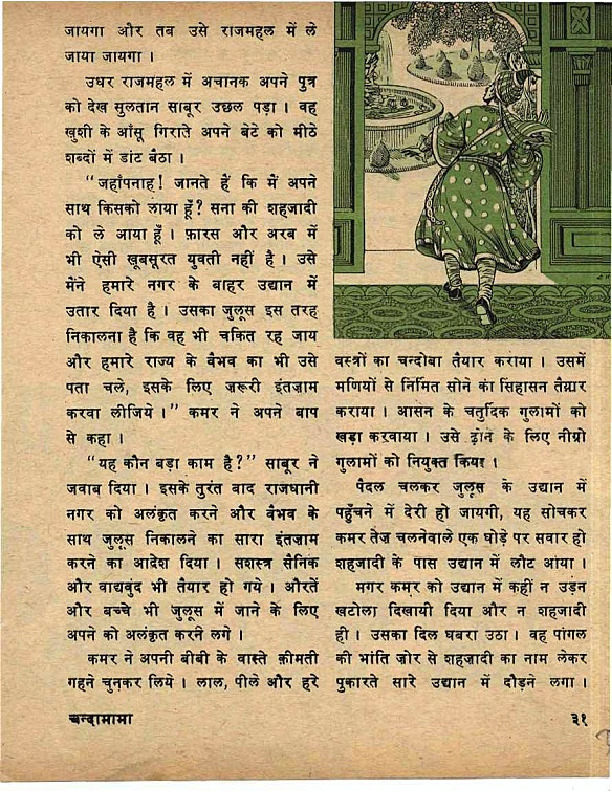 जायगा और तब उसे राजमहल में ले
जाया जायगा ।
उधर राजमहल में अचानक अपने पुत्र
को देख सुलतान साबूर उछल पड़ा । वह
खुशी के आँसू गिराते अपने बेटे को मीठे
शब्दों में डांट बैठा ।
"जहाँपनाह! जानते हैं कि मैं अपने
साथ किसको लाया हूँ? सना की शहजादी
को ले आया हूँ । फ़ारस और अरब में
भी ऐसी खूबसूरत युवती नहीं है । उसे
मैंने हमारे नगर के बाहर उद्यान में
उतार दिया है । उसका जुलूस इस तरह
निकालना है कि वह भी चकित रह जाय
और हमारे राज्य के वैभव का भी उसे
पता चले, इसके लिए ज़रूरी इंतज़ाम
करवा लीजिये ।" कमर ने अपने बाप
से कहा ।
"यह कौन बड़ा काम है?" साबूर ने
जवाब दिया । इसके तुरंत बाद राजधानी
नगर को अलंकृत करने और वैभव के
साथ जुलूस निकालने का सारा इंतज़ाम
करने का आदेश दिया । सशस्त्र सैनिक
और वाद्यवृंद भी तैयार हो गये । औरतें
और बच्चे भी जुलूस में जाने के लिए
अपने को अलंकृत करने लगे ।
कमर ने अपनी बीबी के वास्ते क़ीमती
गहने चुनकर लिये । लाल, पीले और हरे
वस्त्रों का चन्दोबा तैयार कराया । उसमें
मणियों से निर्मित सोने का सिंहासन तैयार
कराया । आसन के चतुर्दिक गुलामों को
खड़ा करवाया । उसे ढ़ोने के लिए नीग्रो
गुलामों को नियुक्त किया ।
पैदल चलकर जुलूस के उद्यान में
पहुँचने में देरी हो जायगी, यह सोचकर
कमर तेज़ चलनेवाले एक घोड़े पर सवार हो
शहजादी के पास उद्यान में लौट आया ।
मगर कमर को उद्यान में कहीं न उड़न
खटोला दिखायी दिया और न शहजादी
ही । उसका दिल घबरा उठा । वह पागल
की भांति ज़ोर से शहज़ादी का नाम लेकर
पुकारते सारे उद्यान में दौड़ने लगा ।
चन्दामामा
३१